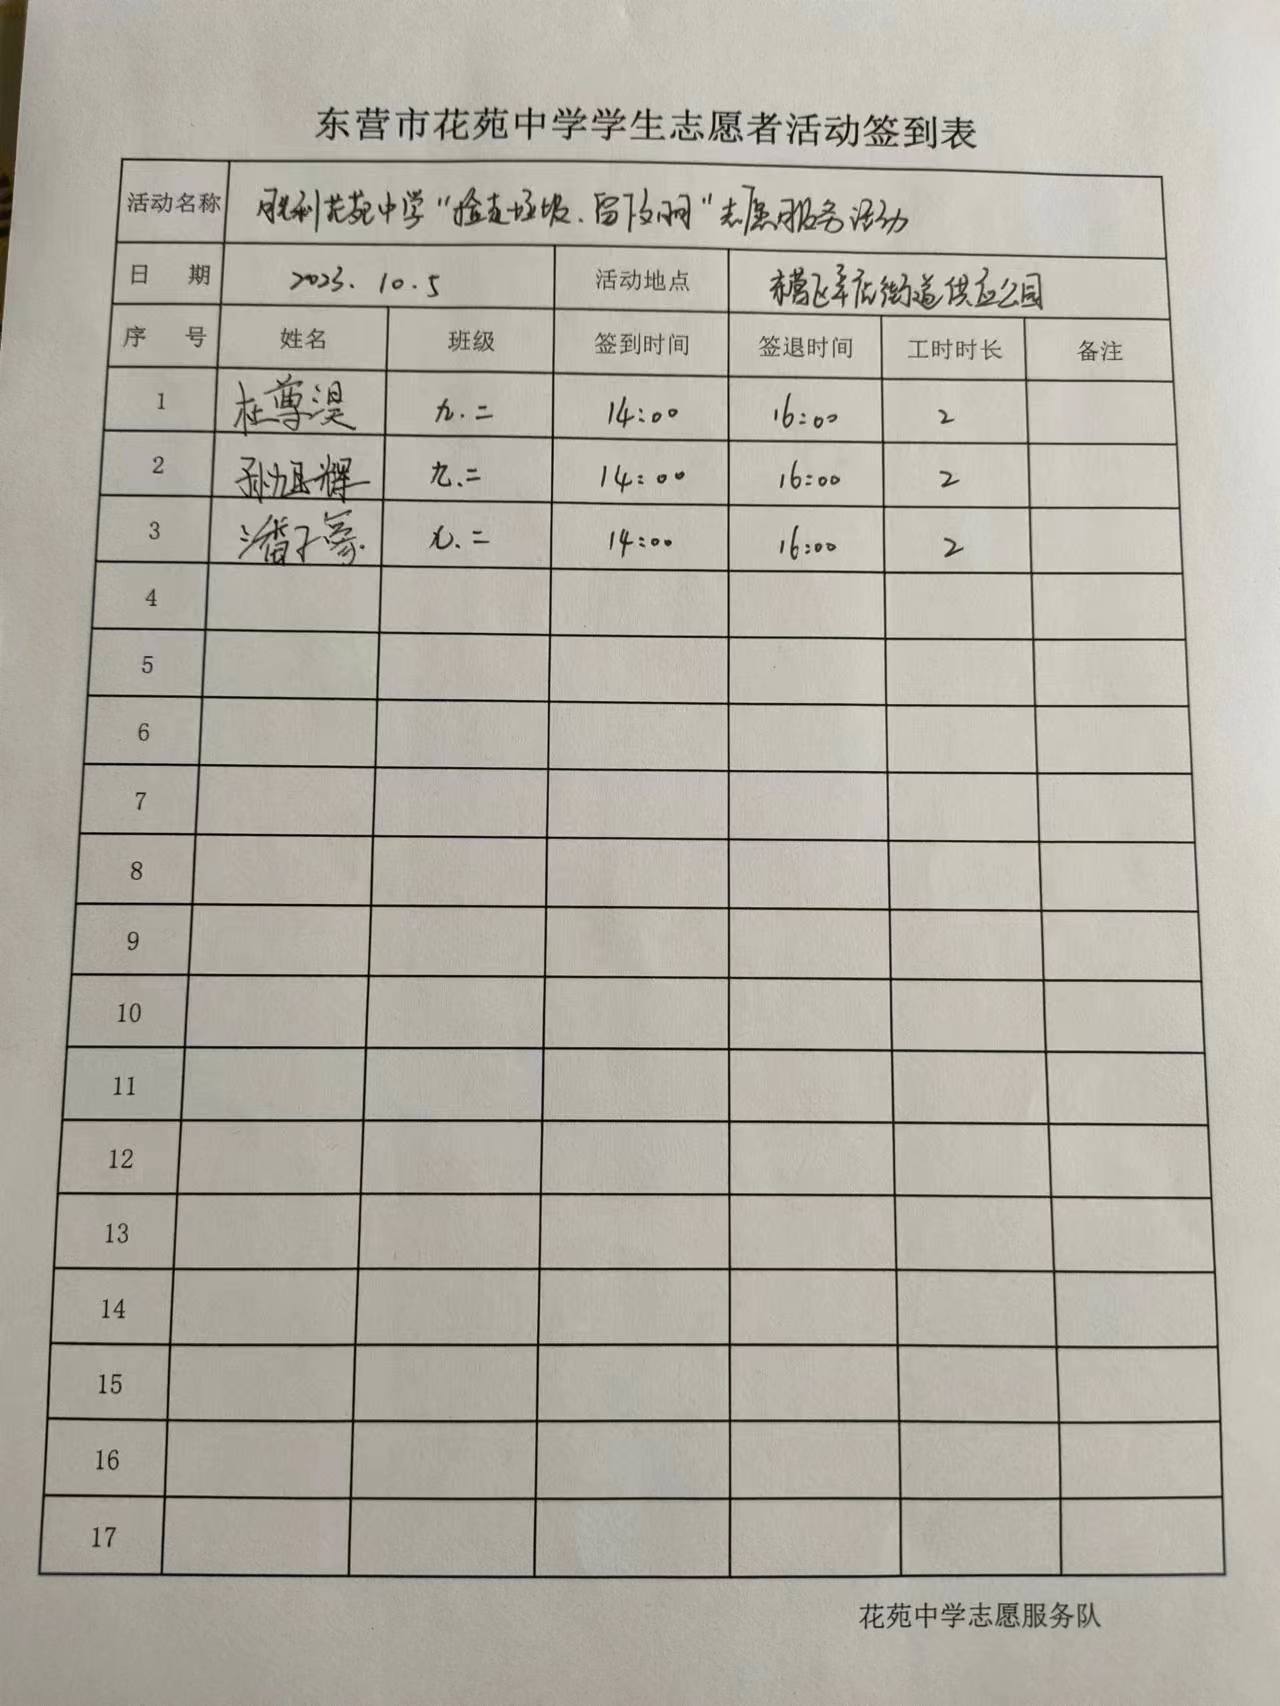 东营市花苑中学学生志愿者活动签到表
活动名称 胜利花苑中学“捡走垃圾、留下文明”志愿服务活动
日 期 2023.10.5 活动地点 东营区辛店街道供应公园
序 号 姓名 班级 签到时间 签退时间 工时时长 备注
1 杜尊淏 九.二 14:00 16:00 2
2 孙旭辉 九.二 14:00 16:00 2
3 潘子豪 九.二 14:00 16:00 2
4
5
6
7
8
9
10
11
12
13
14
15
16
17
花苑中学志愿服务队